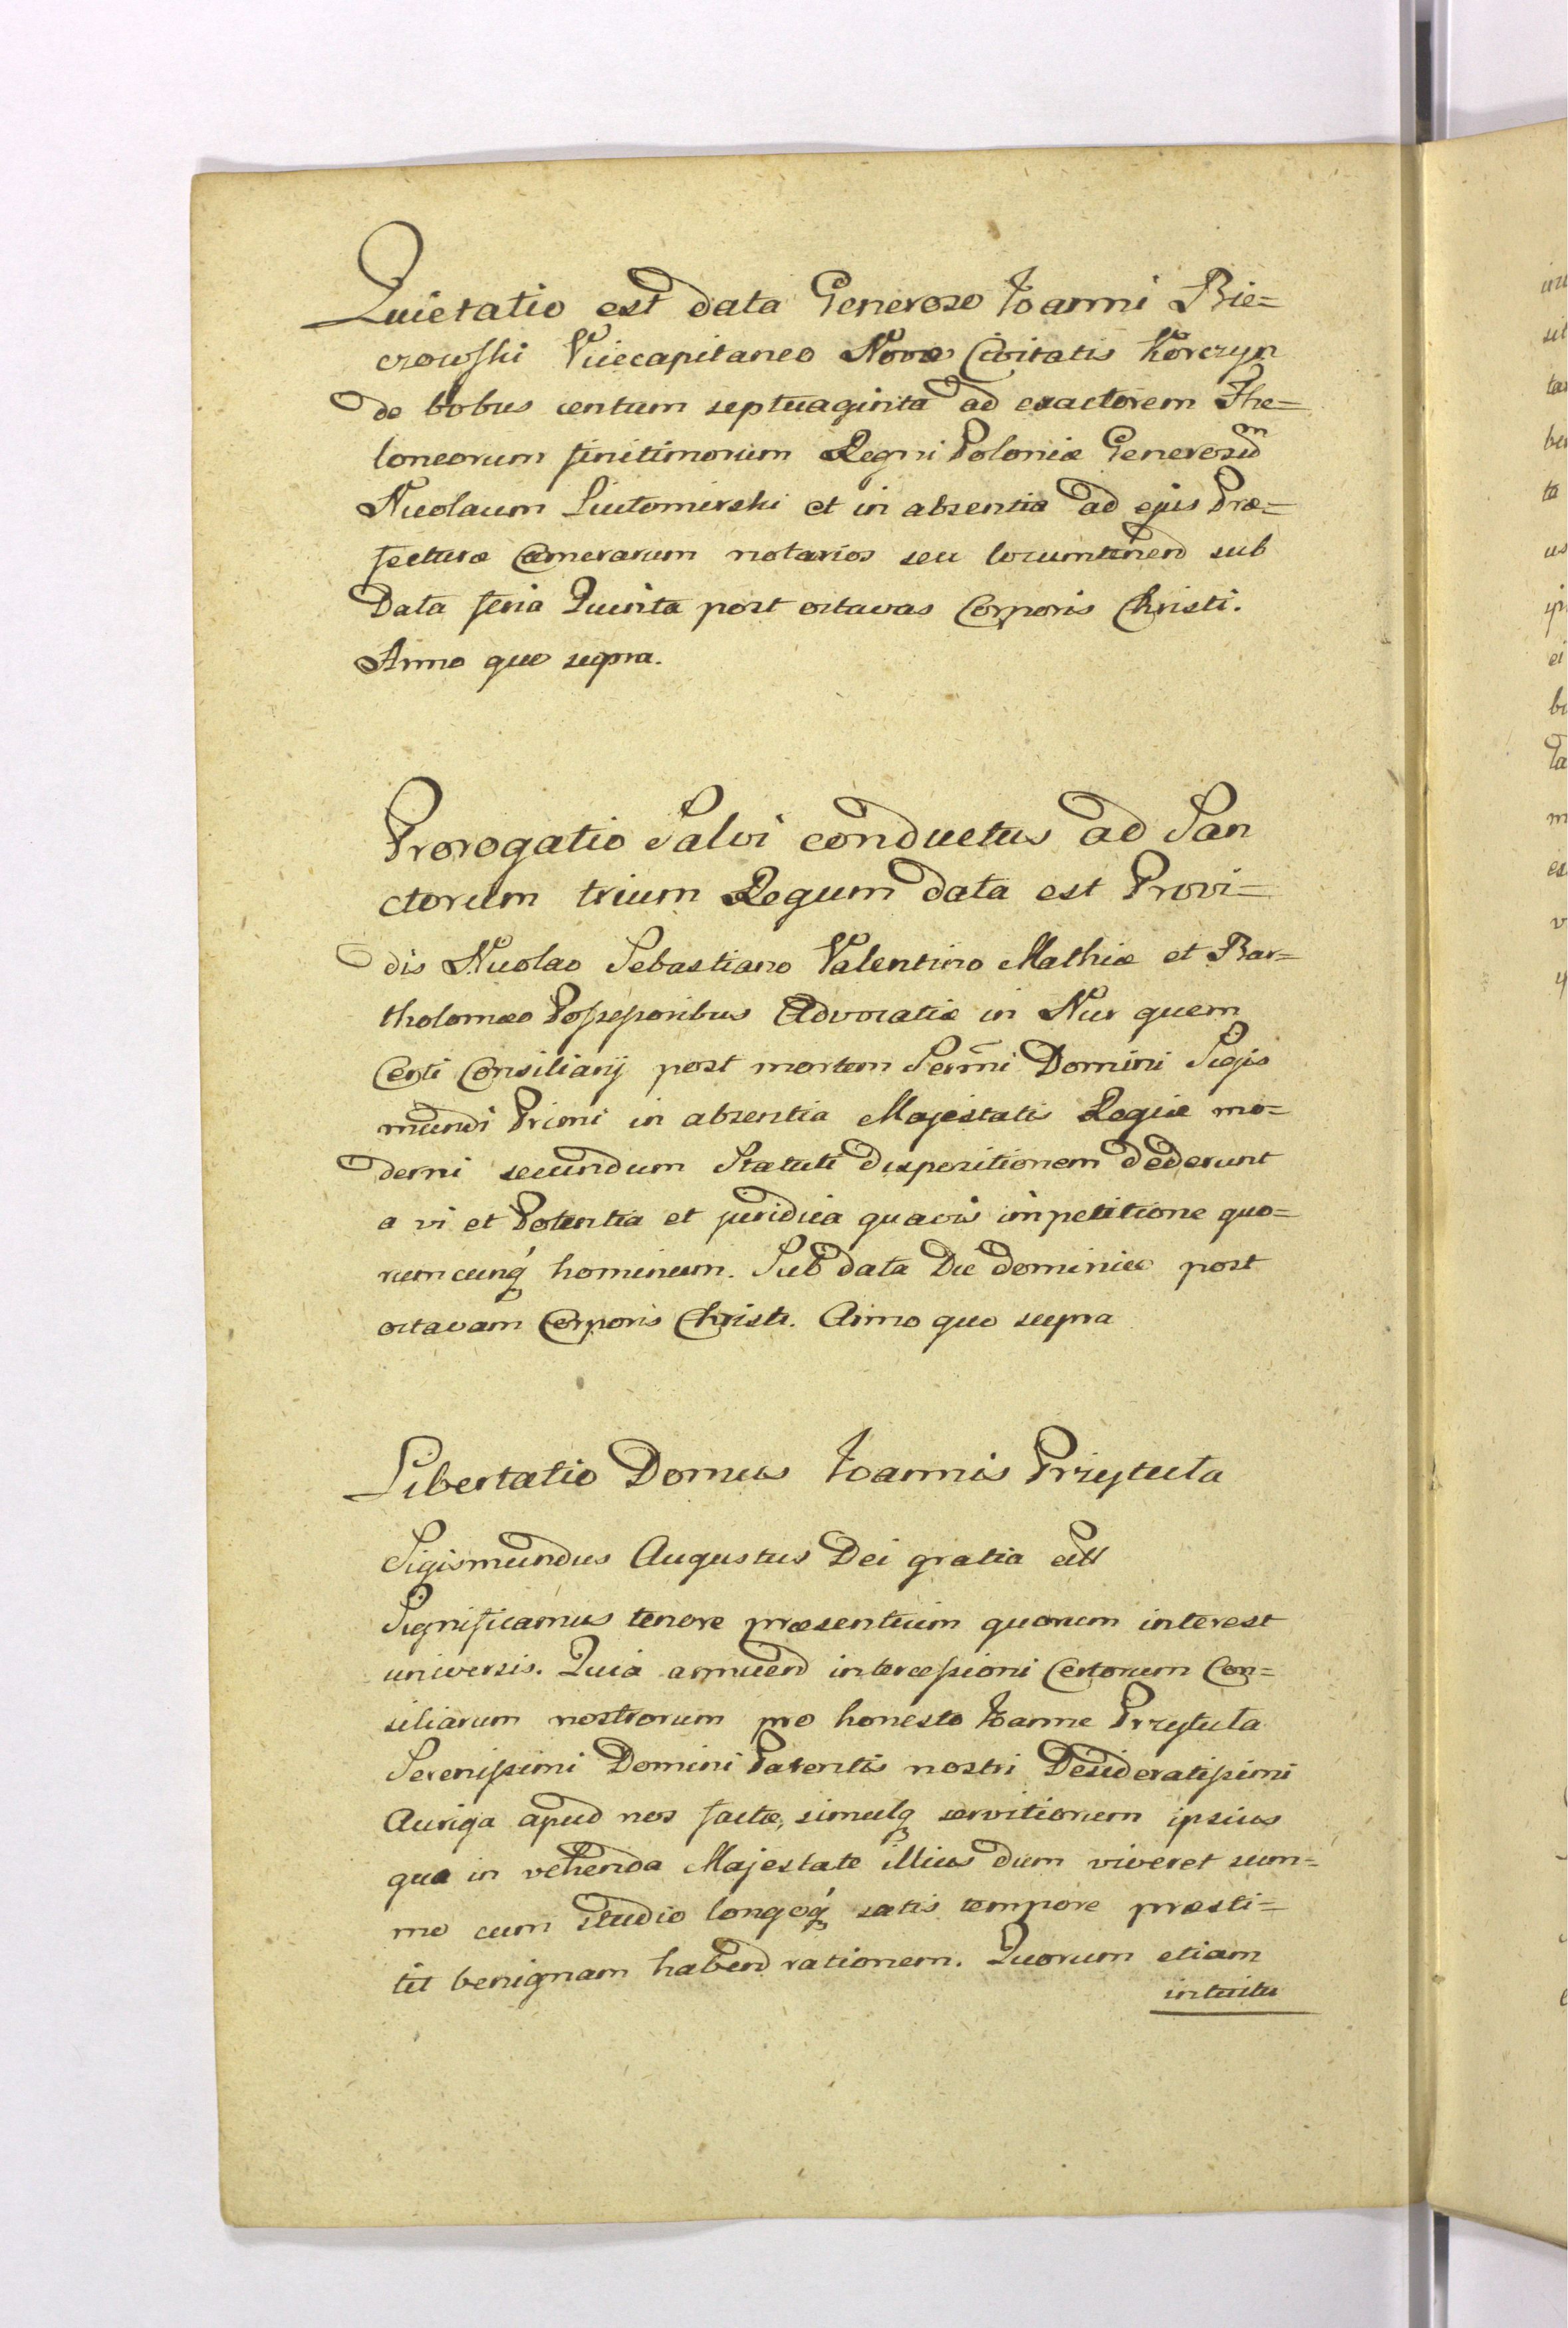 Quietatio est data Generoso Joanni Bie=
czowski Vicecapitaneo Novæ Civitatis Korczyn
de bobus centum septuaginta ad exactorem The=
loneorum finitimorum Regni Poloniæ Generosum
Nicolaum Lutomirski et in absentia ad ejus Præ=
fecturæ Camerarum notarios seu locumtenend sub
Data feria Quinta post octavas Corporis Christi.
Anno quo supra.
Prorogatio Salvi conductus ad San
ctorum trium Regum data est Provi=
dis Nicolao Sebastiano Valentino Mathiæ et Bar=
tholomæo Possessoribus Advocatiæ in Nur quem
Certi Consiliarij post mortem Sermi Domini Sigis
mundi Primi in absentia Majestatis Regiæ mo=
derni secundum Statuti dispositionem dederunt
a vi et Potentia et juridica quavis impetitione quo=
rumcunq́ hominum. Sub data Die dominico post
octavam Corporis Christi. Anno quo supra
Libertatio Domus Joannis Przytuła
Sigismundus Augustus Dei gratia ett
Significamus tenore præsentium quorum interest
universis. Quia annuend intercessioni Certorum Con=
siliarum nostrorum pro honesto Joanne Przytuła
Serenissimi Domini Parentis nostri Desideratissimi
Auriga apud nos factæ, simulq servitiorum ipsius
qua in vehenda Majestate illius dum viveret sum=
mo cum studio longoq́ satis tempore præsti=
tit benignam habend rationem. Quorum etiam
intuitu